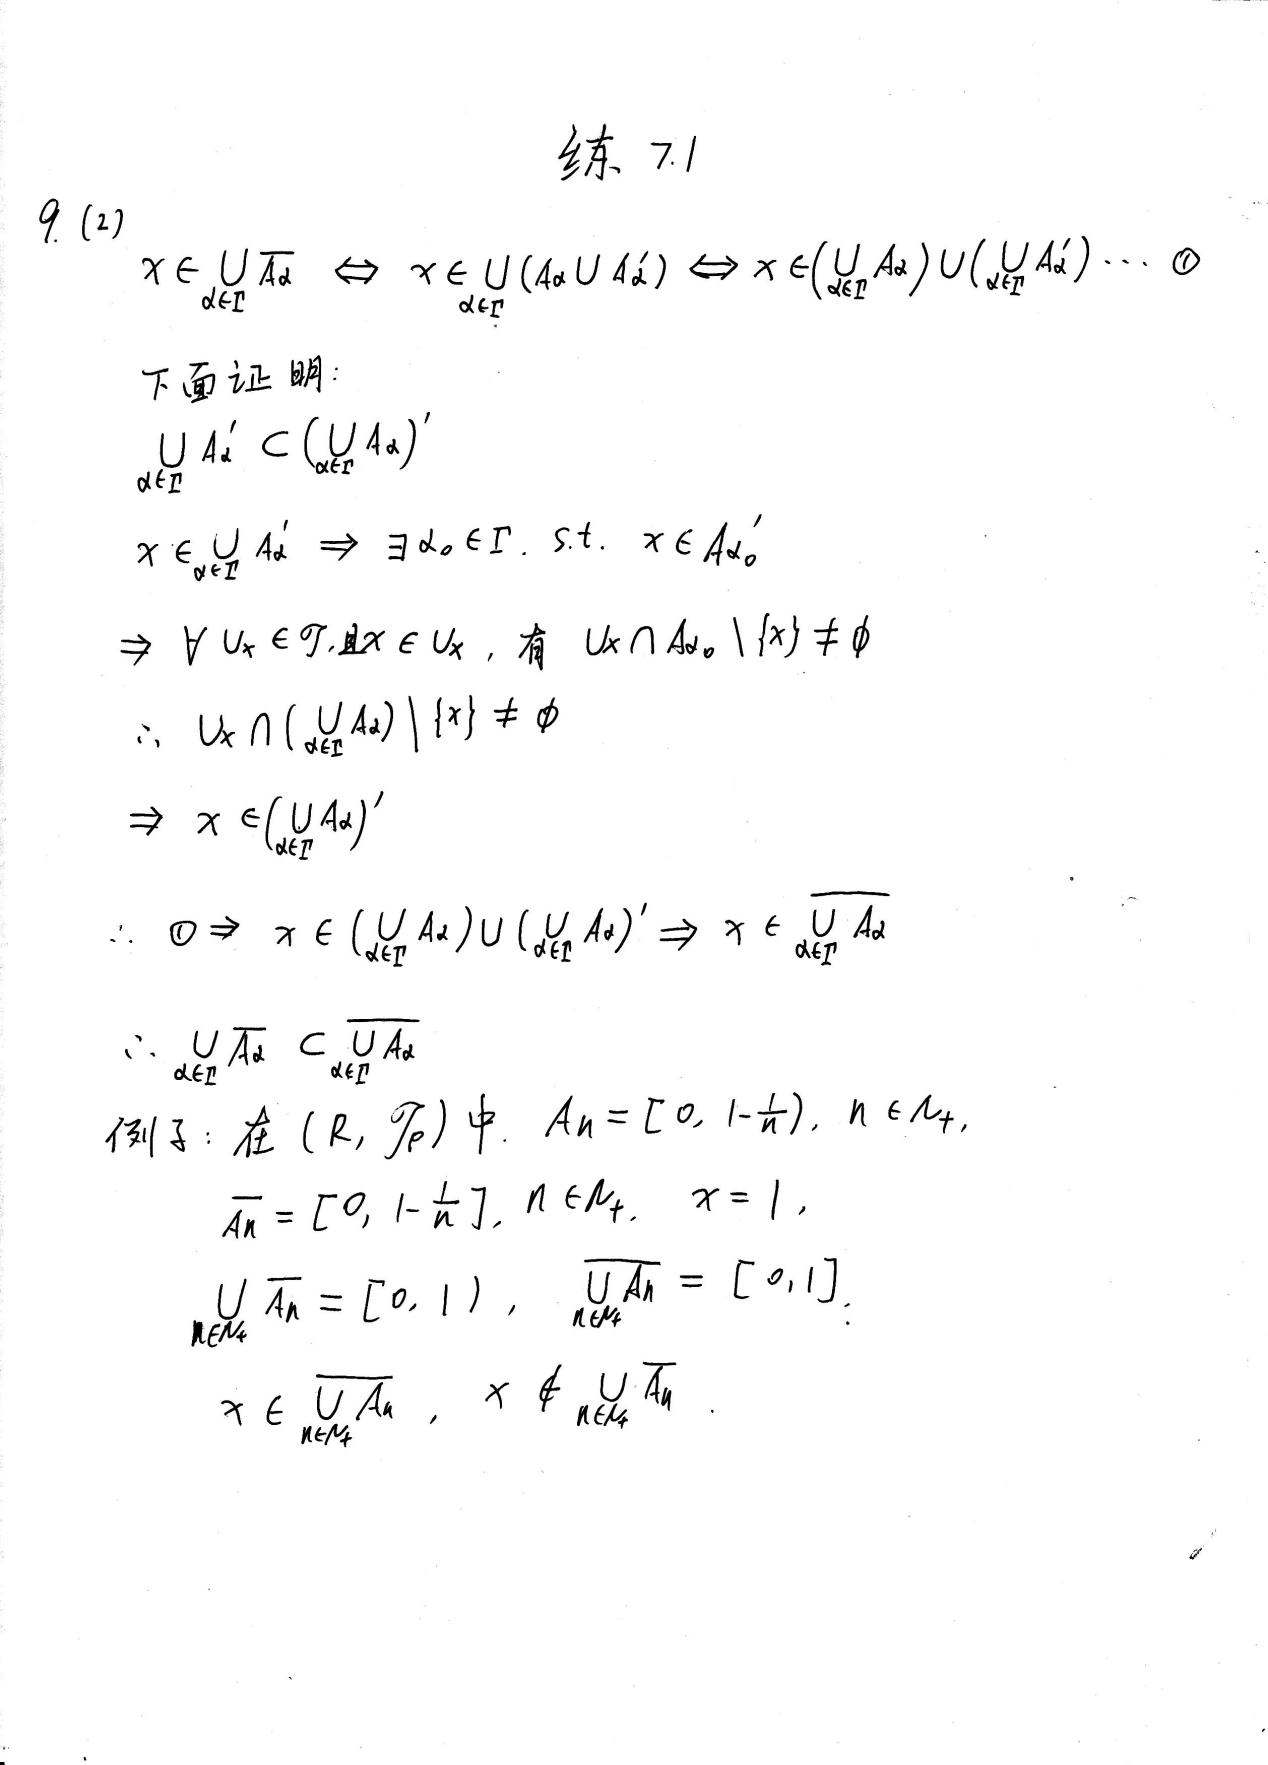 练 7.1
9. (2)
x ∈ ⋃_{α∈Γ} \overline{Aα} ⇔ x ∈ ⋃_{α∈Γ} (Aα ∪ Aα′) ⇔ x ∈ (⋃_{α∈Γ} Aα) ∪ (⋃_{α∈Γ} Aα′) ··· ①
下面证明:
⋃_{α∈Γ} Aα′ ⊂ (⋃_{α∈Γ} Aα)′
x ∈ ⋃_{α∈Γ} Aα′ ⇒ ∃ α₀ ∈ Γ. s.t. x ∈ Aα₀′
⇒ ∀ Ux ∈ 𝒯, 且x ∈ Ux, 有 Ux ∩ Aα₀ \ {x} ≠ ϕ
∴ Ux ∩ (⋃_{α∈Γ} Aα) \ {x} ≠ ϕ
⇒ x ∈ (⋃_{α∈Γ} Aα)′
∴ ① ⇒ x ∈ (⋃_{α∈Γ} Aα) ∪ (⋃_{α∈Γ} Aα)′ ⇒ x ∈ \overline{⋃_{α∈Γ} Aα}
∴ ⋃_{α∈Γ} \overline{Aα} ⊂ \overline{⋃_{α∈Γ} Aα}
例子: 在 (R, 𝒯e) 中. An = [0, 1-1/n), n ∈ N₊,
\overline{An} = [0, 1-1/n], n ∈ N₊. x = 1,
⋃_{n∈N₊} \overline{An} = [0, 1), \overline{⋃_{n∈N₊} An} = [0, 1].
x ∈ \overline{⋃_{n∈N₊} An}, x ∉ ⋃_{n∈N₊} \overline{An}.